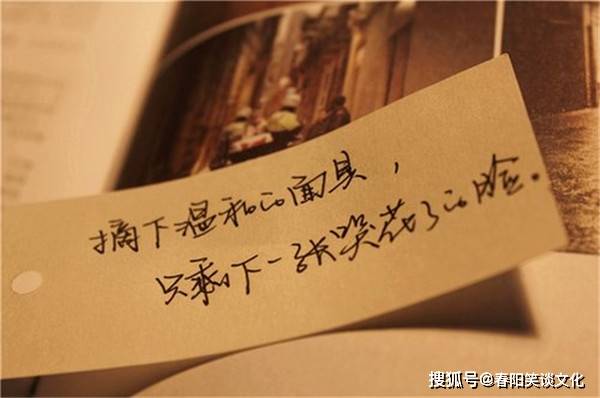 摘下温和的面具，
只剩下一张哭花了的脸。
搜狐号@春阳笑谈文化